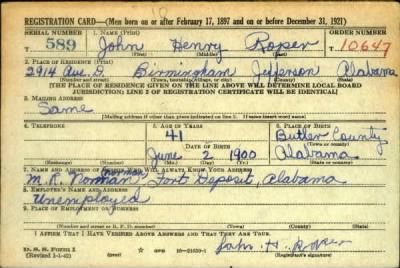 REGISTRATION CARD—(Men born on or after February 17, 1897 and on or before December 31, 1921)
SERIAL NUMBER 1. NAME (Print) ORDER NUMBER
U 589 John Henry Roper 10647
(First) (Middle) (Last)
2. PLACE OF RESIDENCE (Print)
2914 Ave. D Birmingham Jefferson Alabama
(Number and street) (Town, township, village, or city) (County) (State)
[THE PLACE OF RESIDENCE GIVEN ON THE LINE ABOVE WILL DETERMINE LOCAL BOARD
JURISDICTION; LINE 2 OF REGISTRATION CERTIFICATE WILL BE IDENTICAL]
3. MAILING ADDRESS
Same
[Mailing address if other than place indicated on line 2. If same insert word same]
4. TELEPHONE 5. AGE IN YEARS 6. PLACE OF BIRTH
41 Butler County
DATE OF BIRTH (Town or county)
June 2 1900 Alabama
(Exchange) (Number) (Mo.) (Day) (Yr.) (State or country)
7. NAME AND ADDRESS OF PERSON WHO WILL ALWAYS KNOW YOUR ADDRESS
Norman, Fort Deposit, Alabama
8. EMPLOYER'S NAME AND ADDRESS
Unemployed
9. PLACE OF EMPLOYMENT OR BUSINESS
(Number and street or R. F. D. number) (Town) (County) (State)
I AFFIRM THAT I HAVE VERIFIED ABOVE ANSWERS AND THAT THEY ARE TRUE.
John H. Roper
D. S. S. Form 1
(Revised 1-1-42) (Registrant's signature)